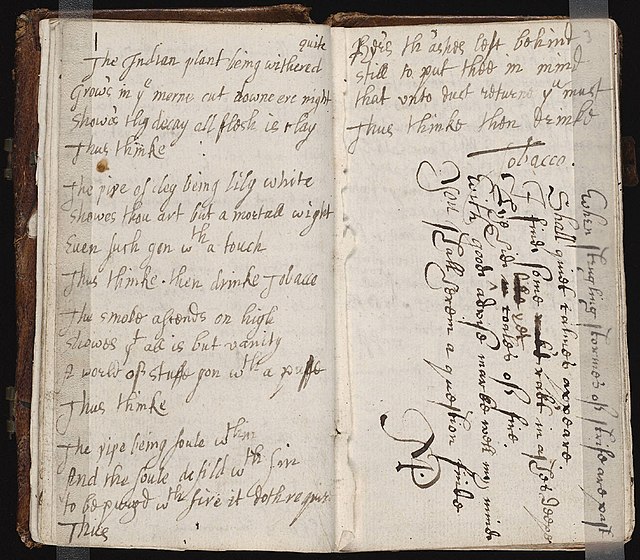 1
quite
The Indian plant being withered
Grow's in ye morne cut downe ere night
Show's thy decay all flesh is clay
Thus thinke
The pipe of cley being lily white
Showes thou art but a mortall wight
Even such gon wth a touch
Thus thinke. then drinke Tobacco
The smoke ascends on high
Showes yt all is but vanity
A world of stuffe gon wth a puffe
Thus thinke
The pipe being foule wthin
And the soule defild wth sin
to be purgd wth fire it doth require
Thus
th' ashes left behind
still to put thee in mind
that unto dust returne yu must
Thus thinke then drinke
Tobacco.
When stormes of strife are past
Shall quiet calmes appeare.
I finde some in
of fire.
with good advise marke well my minde
You shall from a question finde